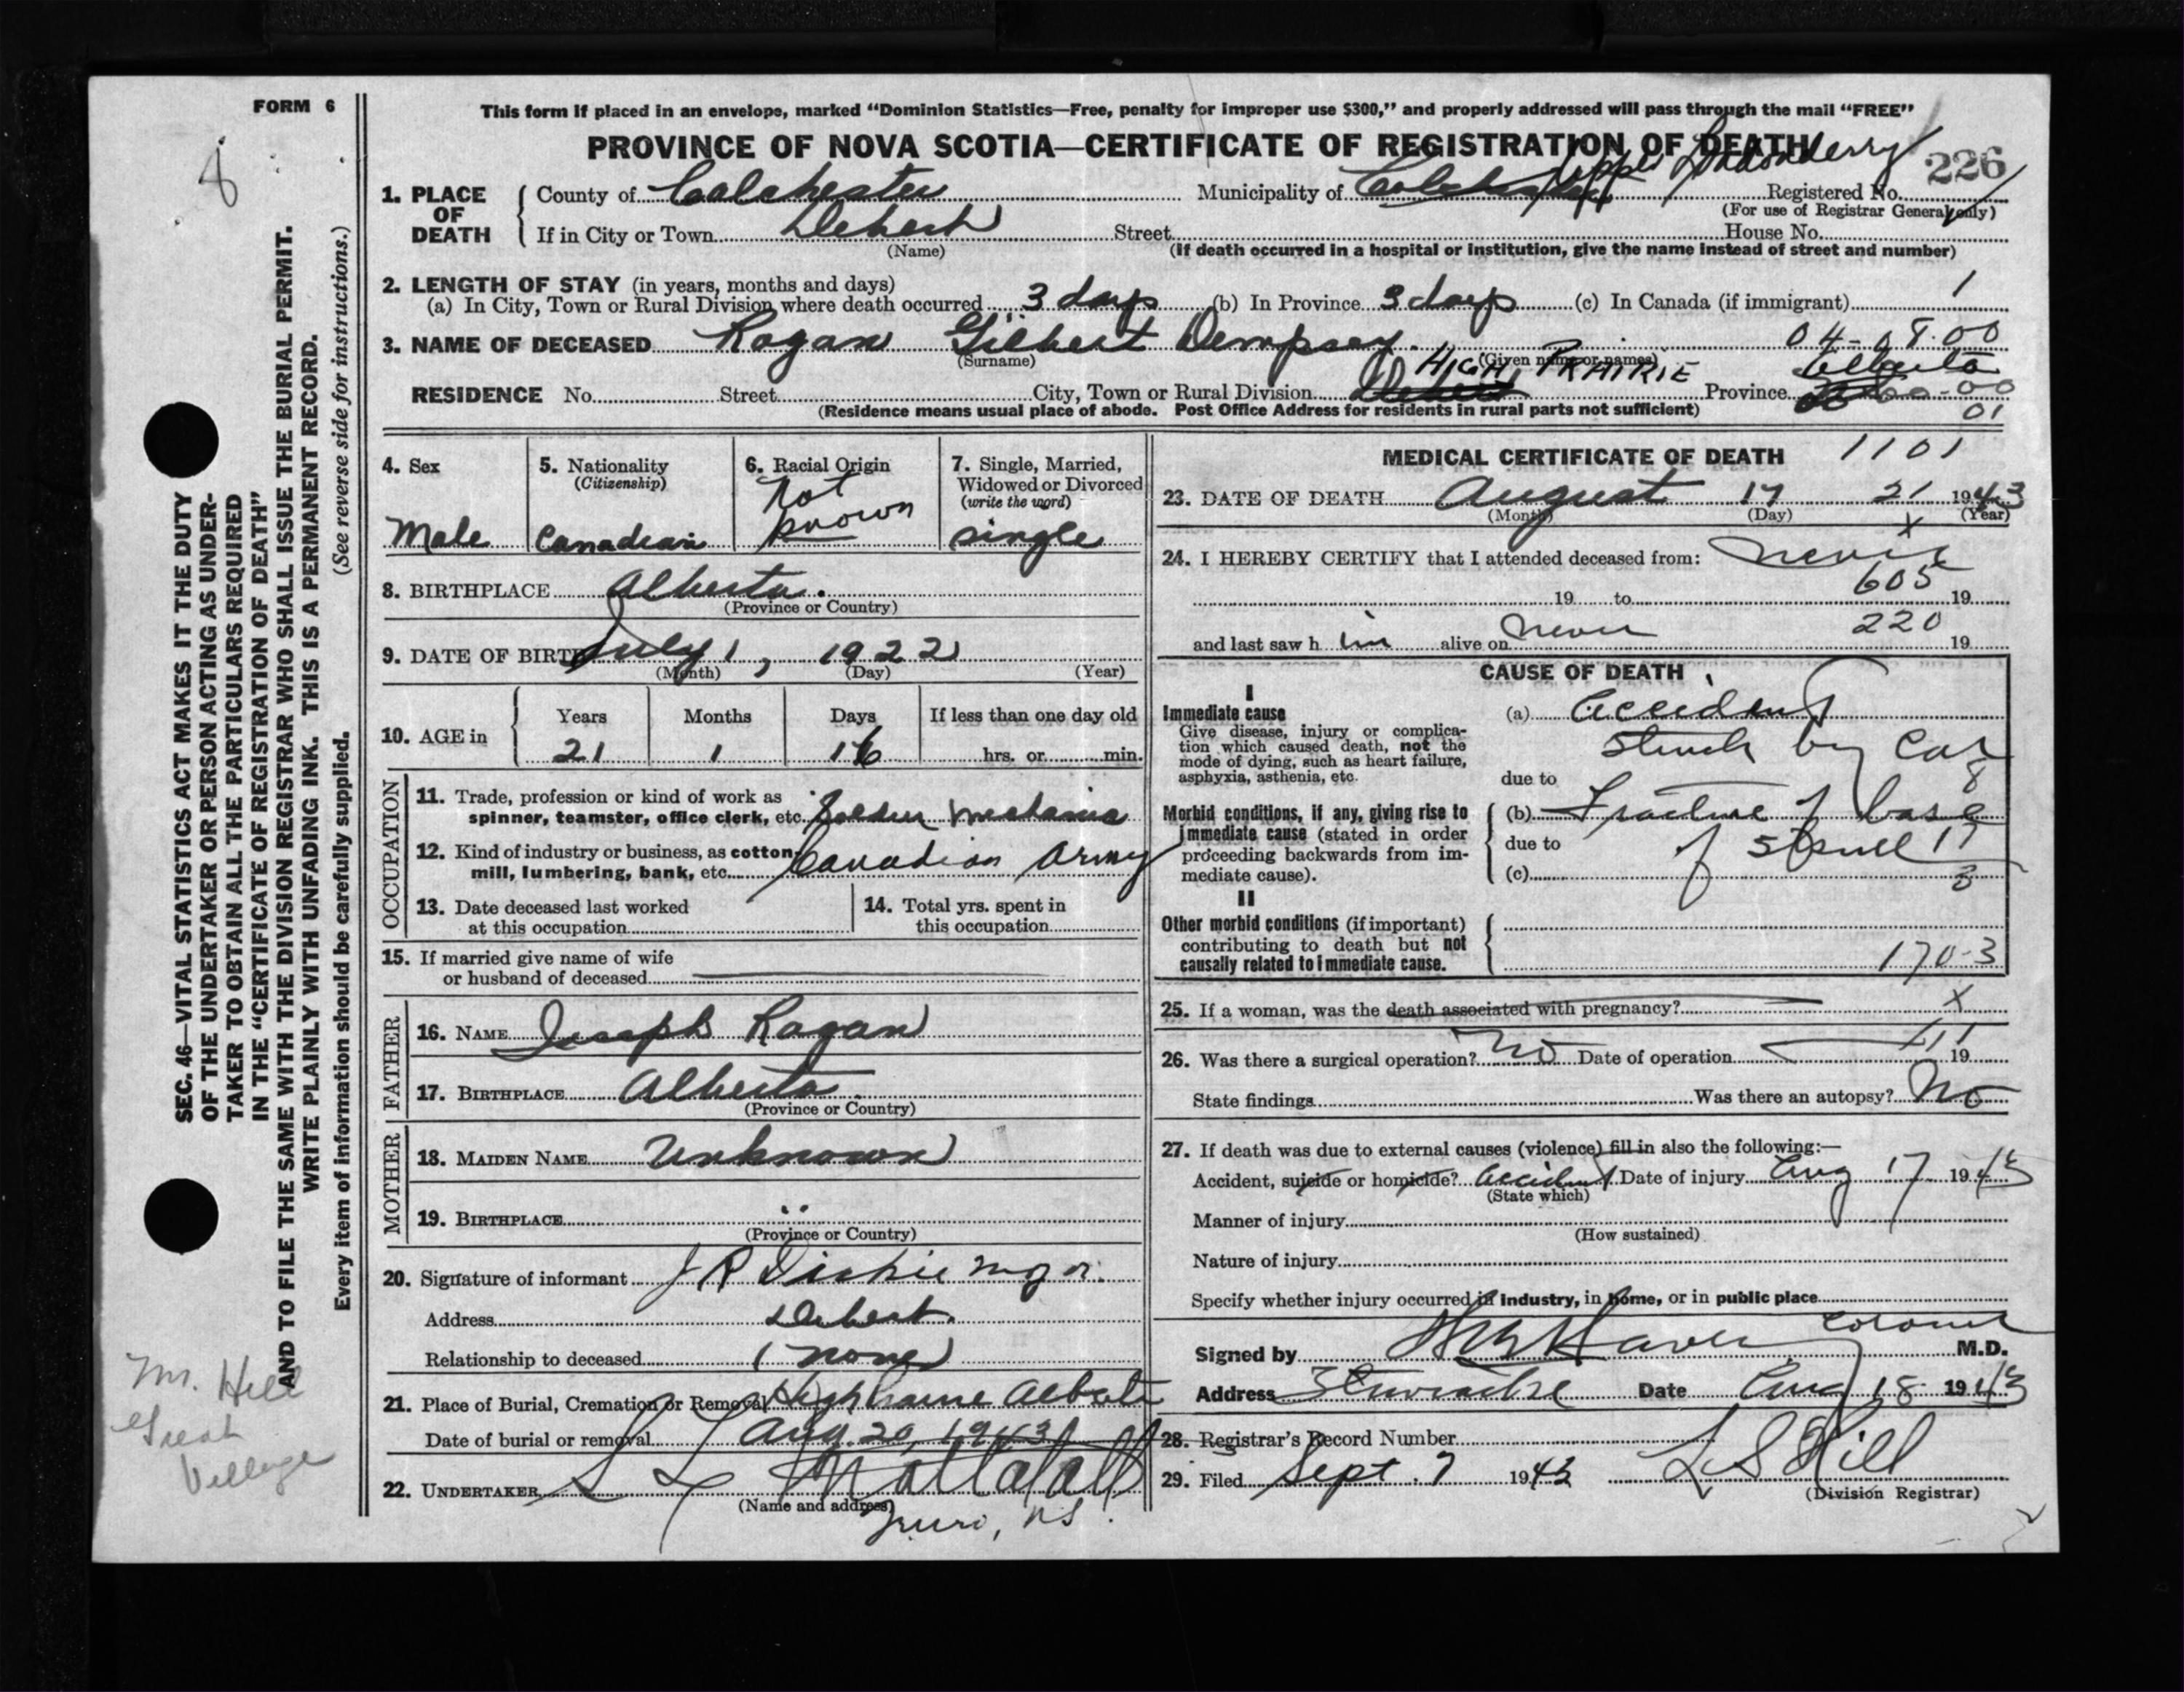 FORM 6
This form if placed in an envelope, marked “Dominion Statistics—Free, penalty for improper use $300,” and properly addressed will pass through the mail “FREE”
PROVINCE OF NOVA SCOTIA—CERTIFICATE OF REGISTRATION OF DEATH
Upper Londonderry
226
8
1. PLACE OF DEATH
County of Colchester Municipality of Colchester Registered No.
(For use of Registrar General only)
If in City or Town Debert Street House No.
(Name) (If death occurred in a hospital or institution, give the name instead of street and number)
2. LENGTH OF STAY (in years, months and days) 1
(a) In City, Town or Rural Division where death occurred 3 days (b) In Province 3 days (c) In Canada (if immigrant)
3. NAME OF DECEASED Rogan Gilbert Dempsey. 04-08.00
(Surname) (Given name or names)
HIGH PRAIRIE Alberta
RESIDENCE No. Street City, Town or Rural Division Debert Province
(Residence means usual place of abode. Post Office Address for residents in rural parts not sufficient) 01
4. Sex 5. Nationality 6. Racial Origin 7. Single, Married,
(Citizenship) Widowed or Divorced
(write the word)
Male Canadian not known single
8. BIRTHPLACE Alberta.
(Province or Country)
9. DATE OF BIRTH July 1, 1922
(Month) (Day) (Year)
10. AGE in Years Months Days If less than one day old
21 1 16 hrs. or min.
OCCUPATION
11. Trade, profession or kind of work as
spinner, teamster, office clerk, etc. Soldier Mechanic
12. Kind of industry or business, as cotton-
mill, lumbering, bank, etc. Canadian Army
13. Date deceased last worked
at this occupation
14. Total yrs. spent in
this occupation
15. If married give name of wife
or husband of deceased
FATHER
16. NAME Joseph Rogan
17. BIRTHPLACE Alberta
(Province or Country)
MOTHER
18. MAIDEN NAME Unknown
19. BIRTHPLACE "
(Province or Country)
20. Signature of informant J R Dickie
Address Debert.
Relationship to deceased (none)
21. Place of Burial, Cremation or Removal High Prairie Alberta
Date of burial or removal Aug. 20, 1943
22. UNDERTAKER L L Mattatall
(Name and address)
Truro, N.S.
MEDICAL CERTIFICATE OF DEATH 1101
23. DATE OF DEATH August 17 21 1943
(Month) (Day) (Year)
x
24. I HEREBY CERTIFY that I attended deceased from: never
605
19 to 19
220
and last saw h im alive on never 19
CAUSE OF DEATH
I
Immediate cause
Give disease, injury or complica-
tion which caused death, not the
mode of dying, such as heart failure,
asphyxia, asthenia, etc.
(a) Accident
Struck by Car
due to 8
Morbid conditions, if any, giving rise to
immediate cause (stated in order
proceeding backwards from im-
mediate cause).
(b) Fracture of base
due to of skull 17
(c) 3
II
Other morbid conditions (if important)
contributing to death but not
causally related to immediate cause.
170-3
25. If a woman, was the death associated with pregnancy? x
26. Was there a surgical operation? No Date of operation 19
State findings Was there an autopsy? No
27. If death was due to external causes (violence) fill in also the following:—
Accident, suicide or homicide? Accident Date of injury Aug 17 1943
(State which)
Manner of injury
(How sustained)
Nature of injury
Specify whether injury occurred in industry, in home, or in public place
Signed by Coroner M.D.
Address Stewiacke Date Aug 18 1943
28. Registrar's Record Number
29. Filed Sept. 7 1943 L S Hill
(Division Registrar)
SEC. 46—VITAL STATISTICS ACT MAKES IT THE DUTY
OF THE UNDERTAKER OR PERSON ACTING AS UNDER-
TAKER TO OBTAIN ALL THE PARTICULARS REQUIRED
IN THE “CERTIFICATE OF REGISTRATION OF DEATH”
AND TO FILE THE SAME WITH THE DIVISION REGISTRAR WHO SHALL ISSUE THE BURIAL PERMIT.
WRITE PLAINLY WITH UNFADING INK. THIS IS A PERMANENT RECORD.
Every item of information should be carefully supplied. (See reverse side for instructions.)
Mr. Hill
Great
Village